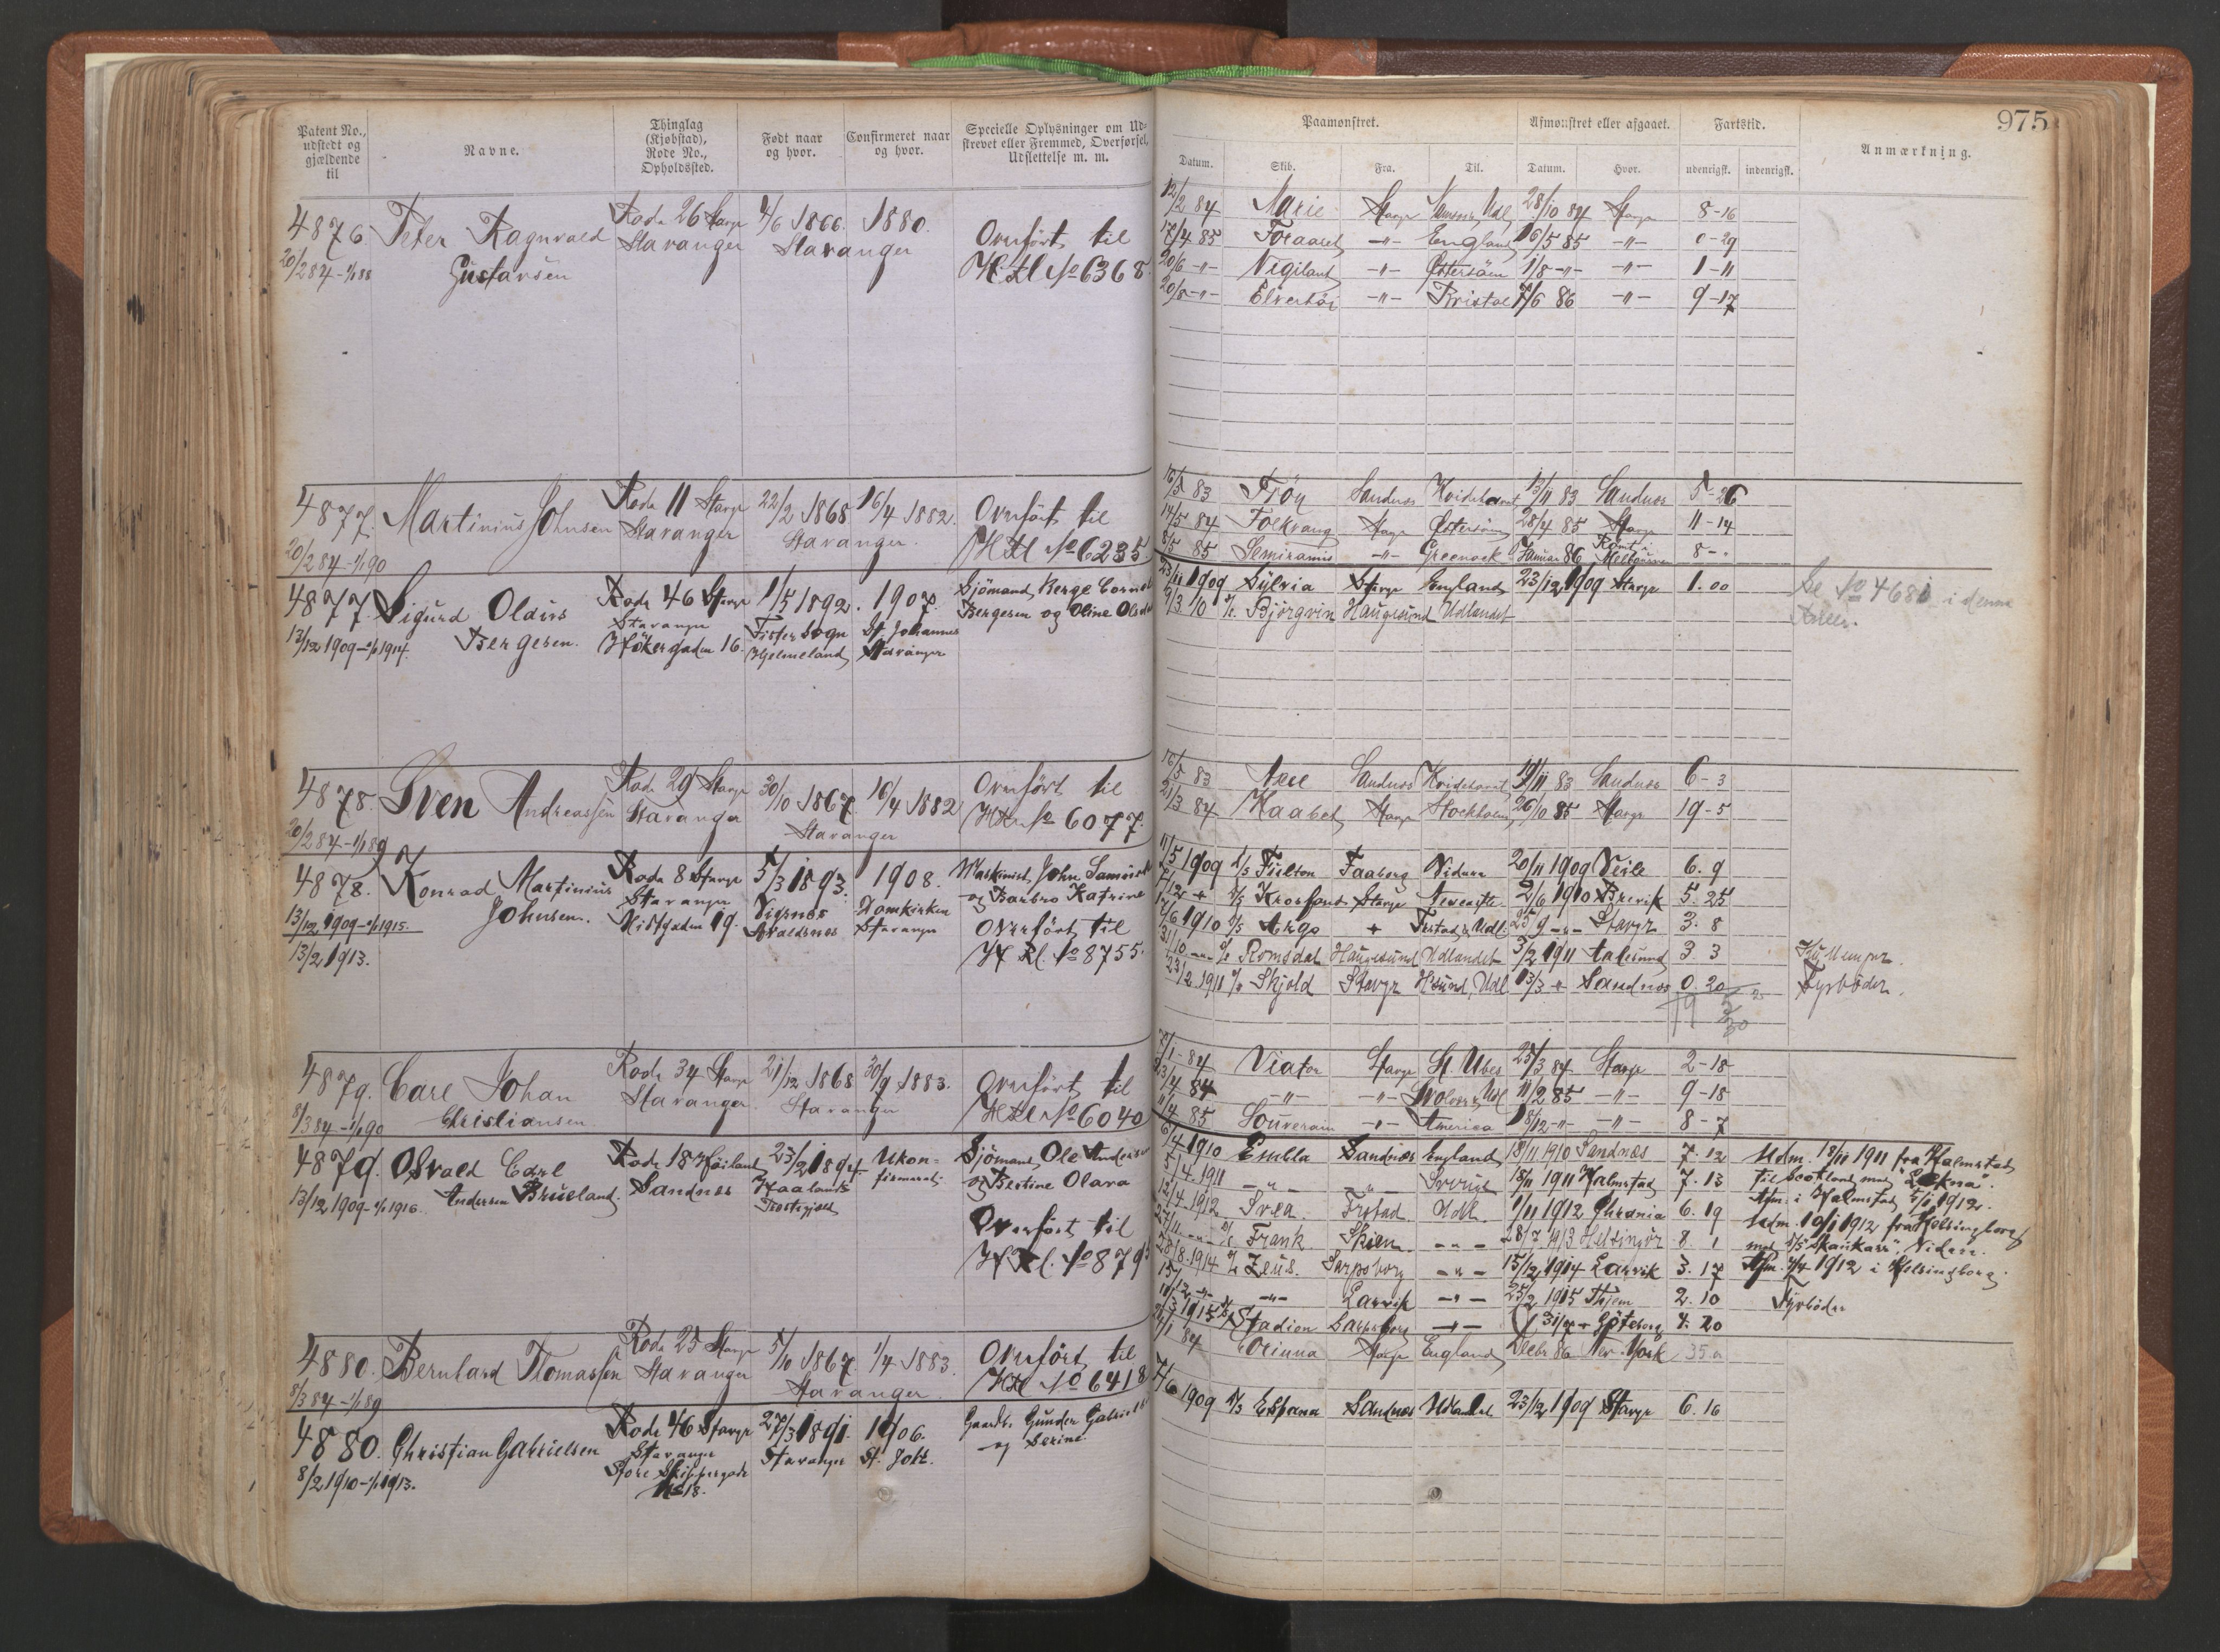 975
Patent No., udstedt og gjældende til
Navne.
Thinglag (Kjøbstad), Rode No., Opholdssted.
Født naar og hvor.
Confirmeret naar og hvor.
Specielle Oplysninger om Udskrevet eller Fremmed, Overførsel, Udslettelse m. m.
Paamønstret.
Afmønstret eller afgaaet.
Fartstid.
Anmærkning.
Datum. Skib. Fra. Til. Datum. Hvor. udenrigsk. indenrigsk.
4876. Peter Ragnvald Rode 26 Stavgr 4/6 1866. 1880.
Gustavsen Stavanger Stavanger
20/2 84 - 1/1 88
Overført til
H Rl No 6368.
12/2 84 Marie Stavgr Udl 28/10 84 Stavgr 8-16
17/4 85 -"- England 16/5 85 -"- 0-29
20/6 -"- Vigilant -"- Østersöen 1/8 -"- -"- 1-11
20/8 -"- Elverhöi -"- Bristol 7/6 86 -"- 9-17
4877. Martinius Johnsen Rode 11 Stavgr 22/2 1868 16/4 1882.
Stavanger Stavanger.
20/2 84 - 1/1 90
Overført til
H Rl No 6235
16/5 83 Fröy Sandnes Hvidehavet 13/11 83 Sandnes 5-26
14/5 84 Folkvang Stavgr Østersöen 28/4 85 Stavgr 11-14
8/5 85 Semiramis -"- Greenock Januar 86 Römt i Melbourne 8-.
4877. Sigurd Olaus Rode 46 Stavgr 1/5 1892. 1907.
Bergesen. Stavanger Fister Sogn St. Johannes
13/12 1909 - 1/1 1914. Hökergaden 16. Hjelmeland Stavanger
Sjömand Berge Cornel
Bergesen og Oline Ols
23/11 1909 Sylvia Stavgr England 23/12 1909 Stavgr 1.00
9/3 10 Bjørgvin Haugesund Udlandet
Se No 4681 i denne
Rulle.
4878. Sven Andreassen Rode 29 Stavgr 30/10 1867. 16/4 1882
Stavanger Stavanger
20/2 84 - 1/1 89
Overført til
H Rl No 6077.
16/5 83 Sandnes Hvidehavet 19/11 83 Sandnes 6-3
21/3 84 Haabet Stavgr Stockholm 26/10 85 Stavgr 19-5
4878. Konrad Martinius Rode 8 Stavgr 5/3 1893. 1908.
Johnsen. Stavanger Vigsnes Domkirken
13/12 1909 - 1/1 1915. Nistgaden 19. Avaldsnes Stavanger
13/2 1913.
Maskinist John
og Barbro Katrine
Overført til
H Rl. No 8755.
11/5 1909 Faaborg Videre 20/11 1909 Veile 6. 9
7/12 + Krosfond Stavgr 2/6 1910 Brevik 5. 25
17/6 1910 Argo + Frstad & Udl. 25/9 -"- Stavgr 3. 8
31/10 -"- Romsdal Haugesund Udlandet 3/2 1911 Aalesund 3. 3
23/2 1911 Skjold Stavgr Hsund, Udl 13/3 + Sandnes 0. 20
Kullemper.
Fyrböder.
4879. Carl Johan Rode 34 Stavgr 21/12 1868 30/9 1883.
Christiansen Stavanger. Stavanger
8/3 84 - 1/1 90
Overført til
H Rl No 6040
7/1 - 84 Viator Stavgr St Ubes 25/3 84 Stavgr 2-18
23/4 84 -"- -"- Svolvær & Udl 11/2 85 -"- 9-18
11/4 85 Souverain -"- America 18/12 -"- -"- 8-7
4879. Osvald Carl Rode 18 Höiland 23/2 1894 Ukon-
Andersen Brueland. Sandnes Haalands firmeret
13/12 1909 - 1/1 1916.
Sjömand Ole Andersen
og Bestine Olava
Overført til
H Rl. No 879
6/4 1910 Embla Sandnæs England 18/11 1910 Sandnæs 7. 12
5/4 1911 -"- -"- Sverige 18/11 1911 Halmstad 7. 13
12/4 1912 Svea. Frstad. Udl. 1/11 1912 Chrania 6. 19
27/11 -"- Frank Skien -"- 28/7 1913 Helsingör 8. 1
28/8 1914 Zeus. Sarpsborg -"- 15/12 1914 Larvik 3. 17
15/12 -"- -"- Larvik -"- 25/2 1915 Thjem 2. 10
11/3 1915 Stadion Sarpsborg -"- 31/7 + Göteborg 4. 20
Udm. 18/11 1911 fra Halmstad
til Scotland med "Lekna".
Afm. i Halmstad 5/1 1912.
Udm. 10/1 1912 fra Helsingborg
med "Skankass". Videre.
Afm. 4/4 1912 i Helsingborg.
Fyrböder
4880. Bernhard Thomassen Rode 25 Stavgr 5/10 1867. 1/4 1883.
Stavanger Stavanger.
8/3 84 - 1/1 89
Overført til
H Rl No 6418
84 Corinna Stavgr England Decbr 86 New-York 35
4880. Christian Gabrielsen Rode 46 Stavgr 27/3 1891. 1906.
8/2 1910 - 1/1 1913. Stavanger Stavanger St. Joh.
Store Skippergade
No 18.
Gaardb. Gunder Gabrielsen
og Serine.
7/6 1909 Espana Sandnæs Udlandet 23/12 1909 Stavgr 6. 16